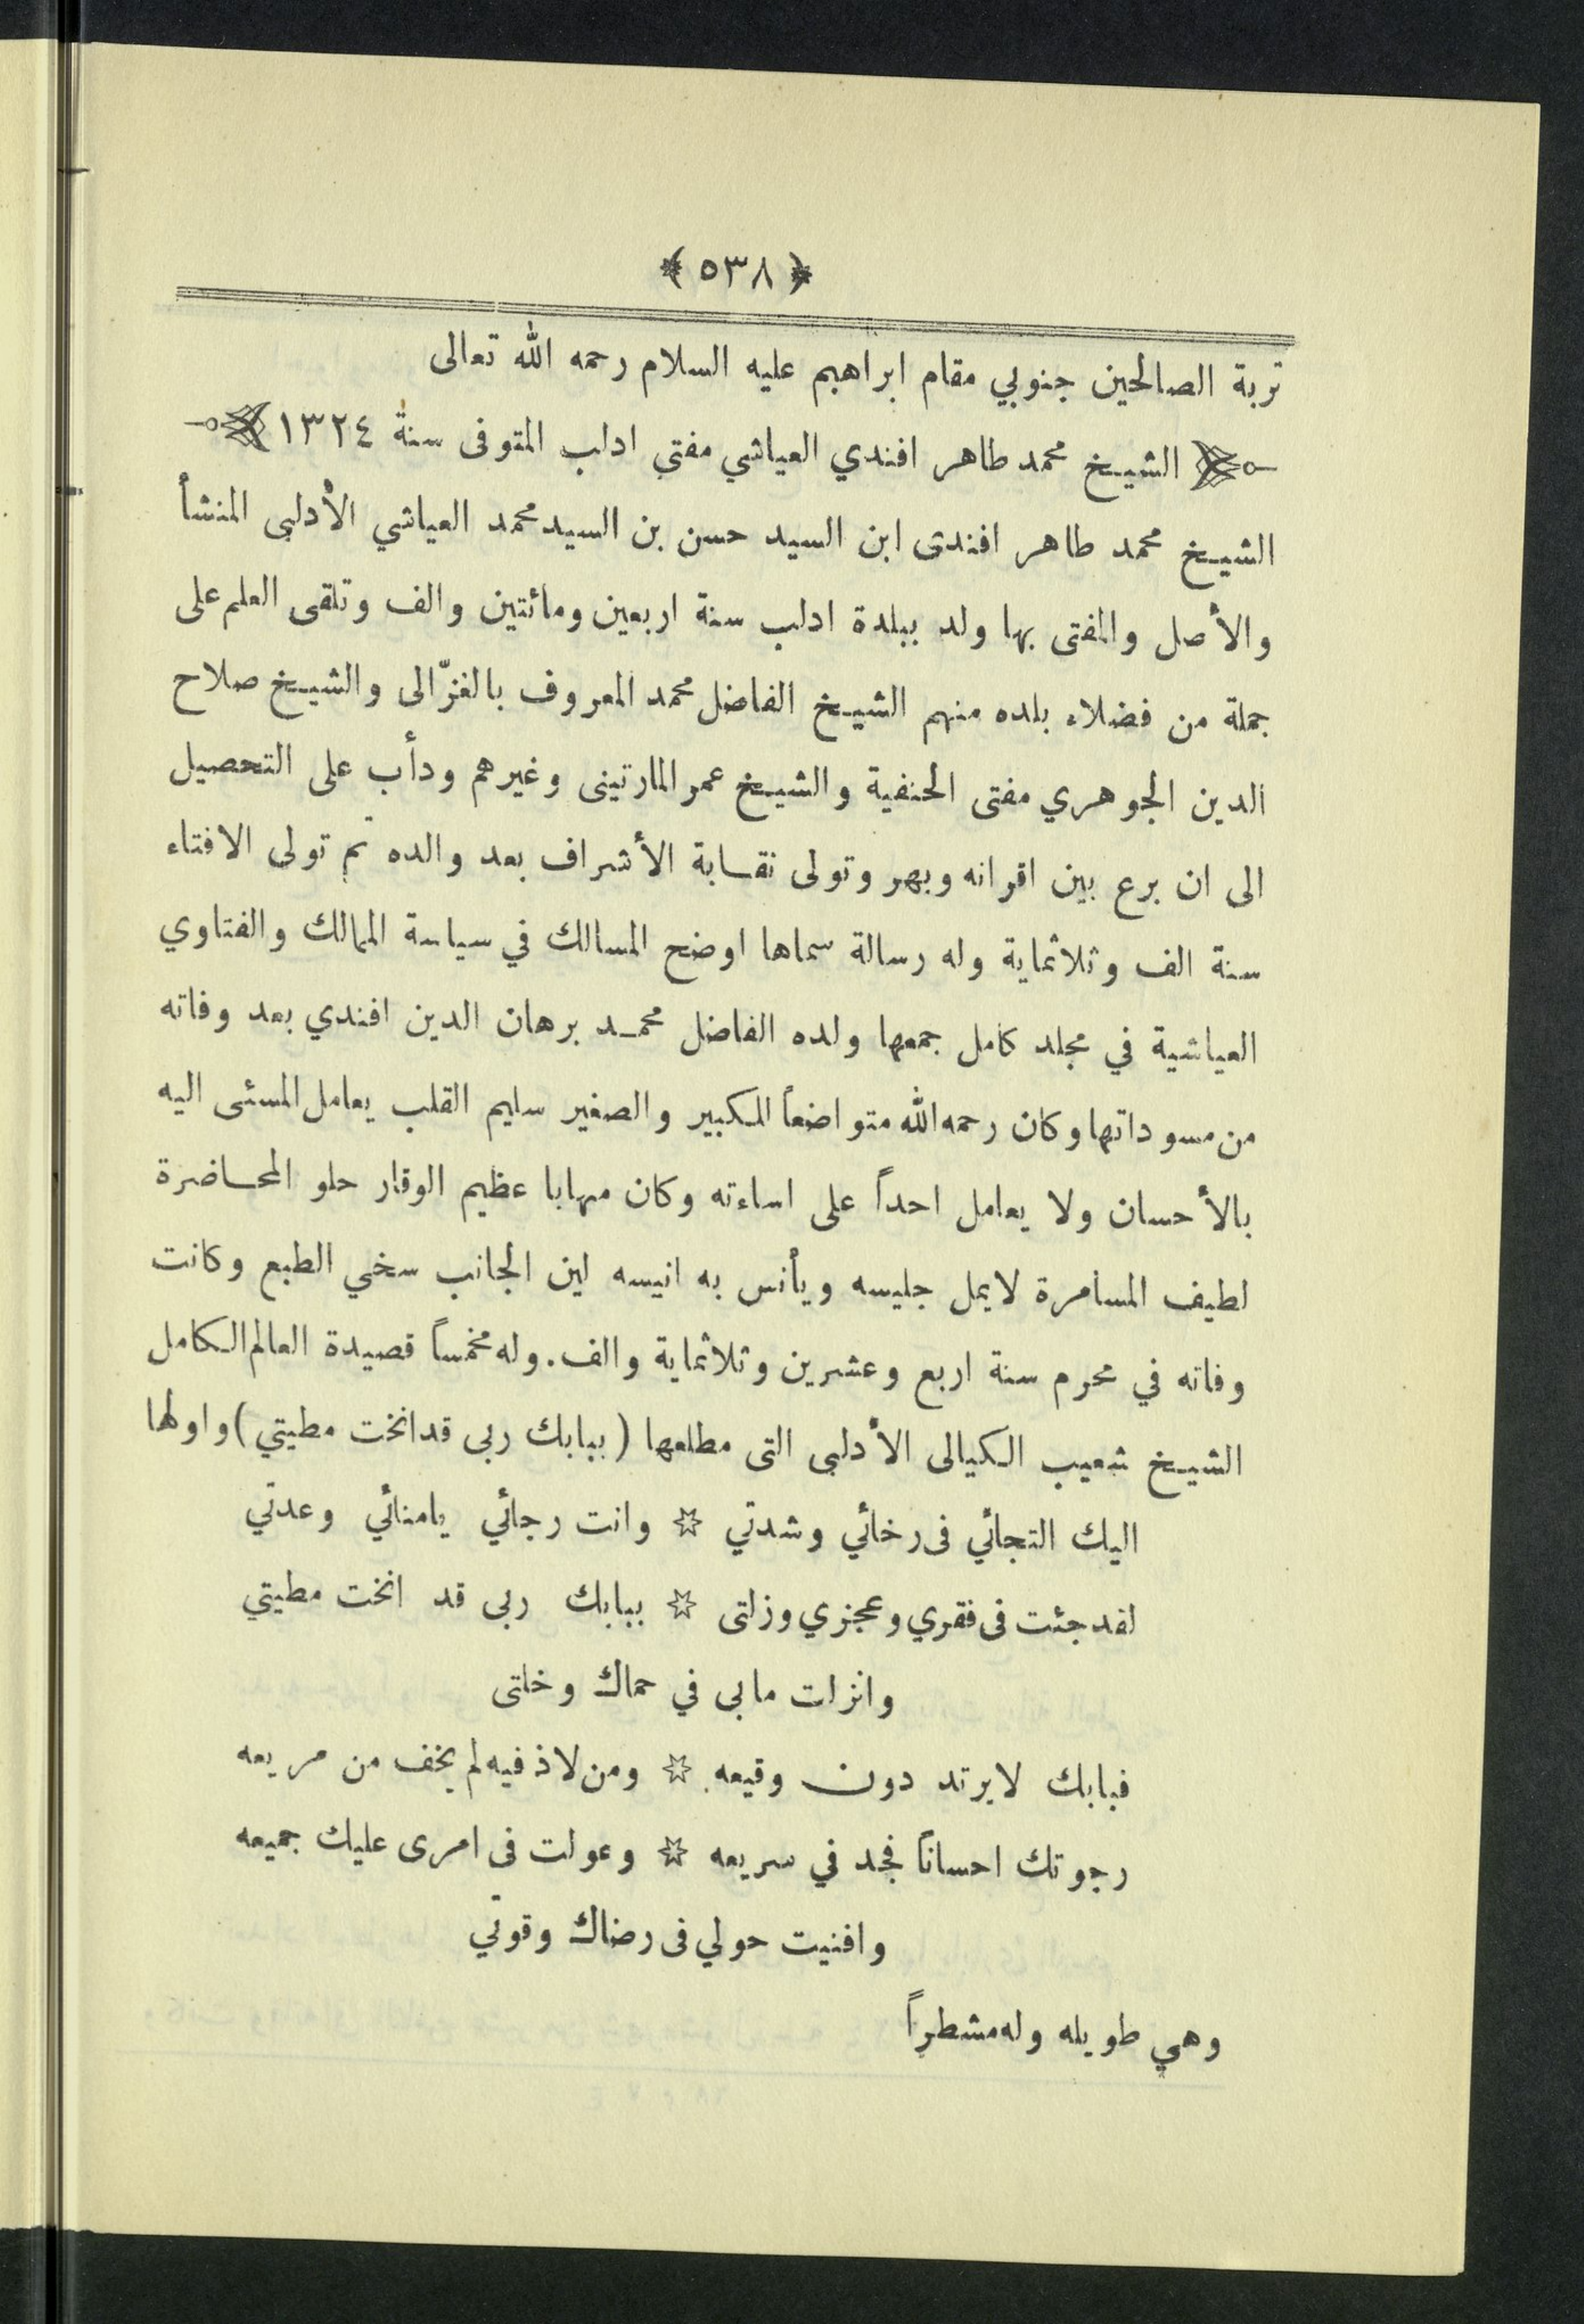 ﴿ ٥٣٨ ﴾
تربة الصالحين جنوبي مقام ابراهيم عليه السلام رحمه الله تعالى
الشيخ محمد طاهر افندي العياشي مفتي ادلب المتوفى سنة ١٣٢٤
الشيخ محمد طاهر افندى ابن السيد حسن بن السيد محمد العياشي الأدلبى المنشأ
والأصل والمفتى بها ولد ببلدة ادلب سنة اربعين ومائتين والف وتلقى العلم على
جملة من فضلاء بلده منهم الشيخ الفاضل محمد المعروف بالغزّالى والشيخ صلاح
الدين الجوهري مفتى الحنفية والشيخ عمر المارتينى وغيرهم ودأب على التحصيل
الى ان برع بين اقرانه وبهر وتولى نقابة الأشراف بعد والده ثم تولى الافتاء
سنة الف وثلاثماية وله رسالة سماها اوضح المسالك في سياسة الممالك والفتاوي
العياشية في مجلد كامل جمعها ولده الفاضل محمد برهان الدين افندي بعد وفاته
من مسوداتها وكان رحمه الله متواضعاً للكبير والصغير سليم القلب يعامل المسئى اليه
بالأحسان ولا يعامل احداً على اساءته وكان مهابا عظيم الوقار حلو المحاضرة
لطيف المسامرة لايمل جليسه ويأنس به انيسه لين الجانب سخي الطبع وكانت
وفاته في محرم سنة اربع وعشرين وثلاثماية والف. وله مخمساً قصيدة العالم الكامل
الشيخ شعيب الكيالى الأدلبى التى مطلعها (ببابك ربى قد انخت مطيتي) واولها
اليك التجائي فى رخائي وشدتي ☆ وانت رجائي يامنائي وعدتي
لقد جئت فى فقري وعجزي وزلتى ☆ ببابك ربى قد انخت مطيتي
وانزلت مابى في حماك وخلتى
فبابك لايرتد دون وقيعه ☆ ومن لاذ فيه لم يخف من مريعه
رجوتك احساناً فجد في سريعه ☆ وعولت فى امرى عليك جميعه
وافنيت حولي فى رضاك وقوتي
وهي طويله وله مشطراً